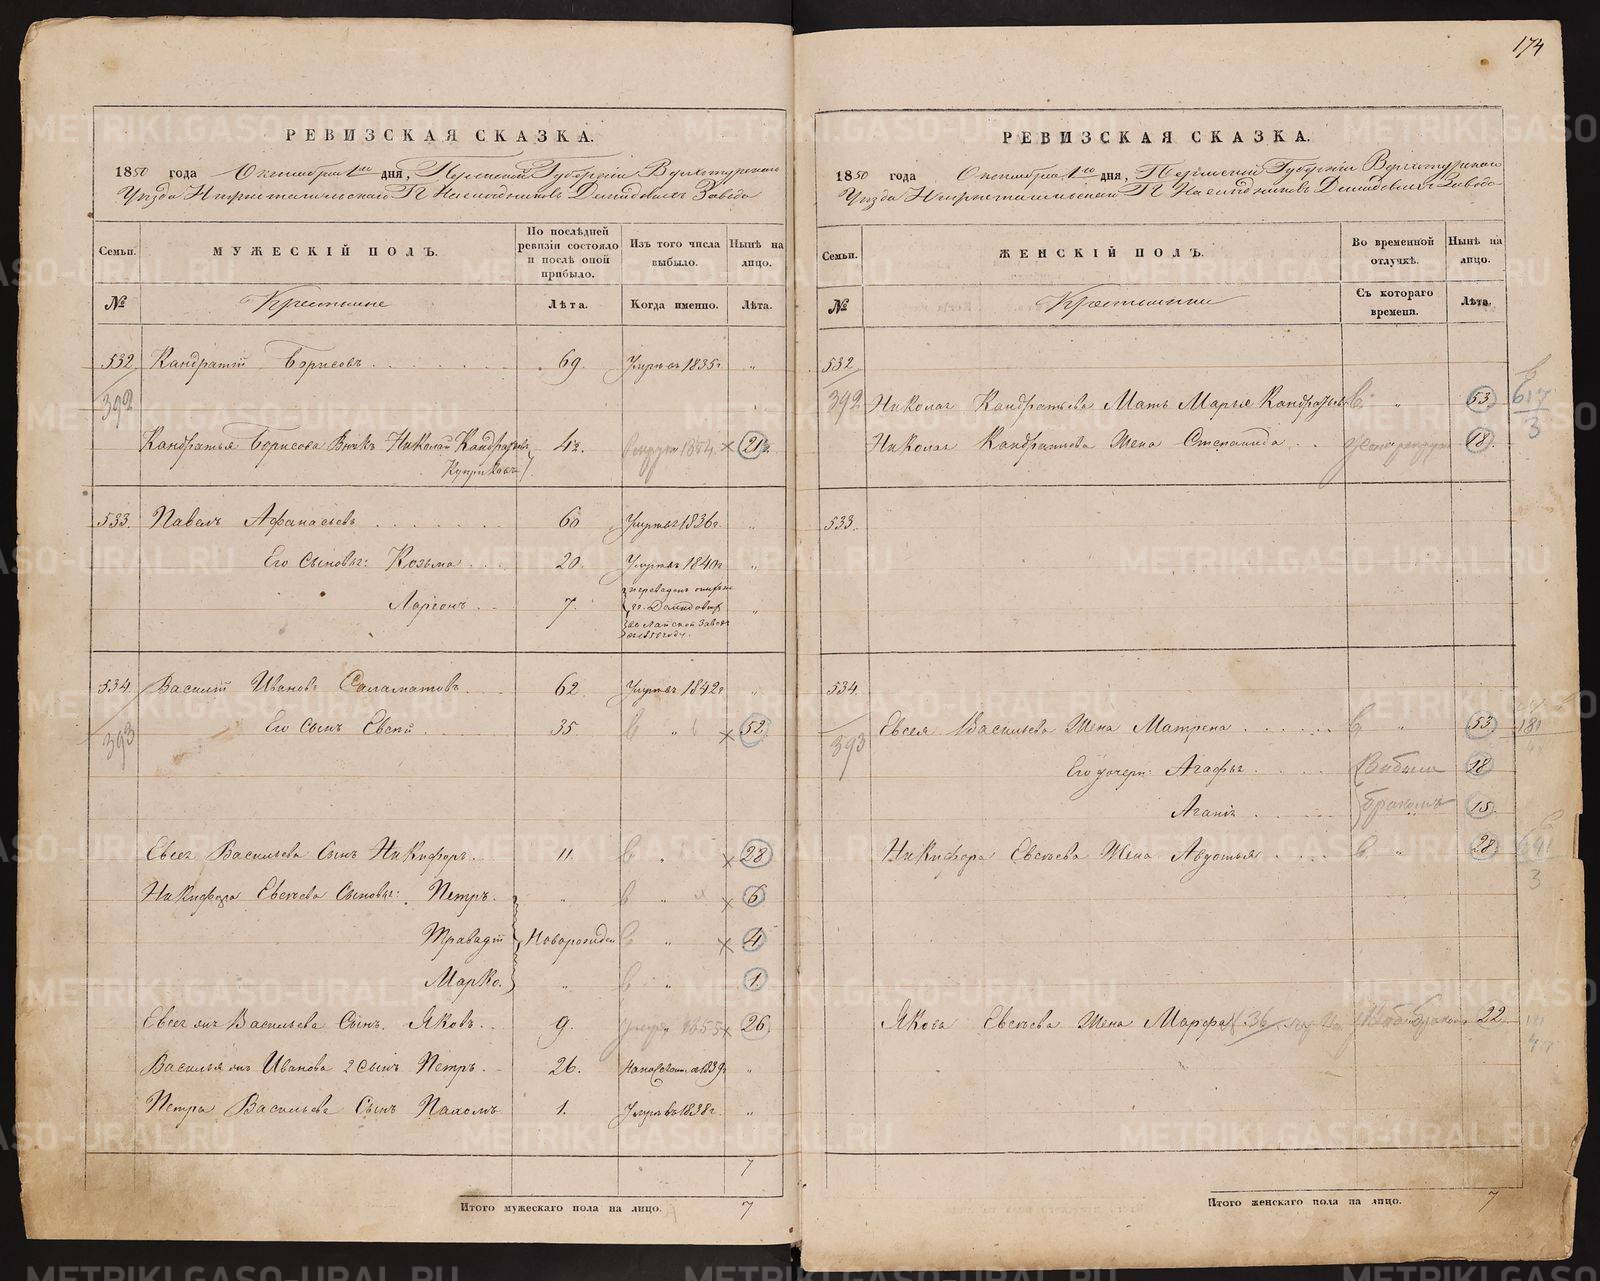 174
РЕВИЗСКАЯ СКАЗКА.
1850 года Октября 1го дня, Пермской Губернии Верхотурскаго
Уезда Нижнетагильскаго Г. Наследниковъ Демидовыхъ Завода
Семьи. МУЖЕСКІЙ ПОЛЪ. По послѣдней ревизіи состояло и послѣ оной прибыло. Изъ того числа выбыло. Нынѣ на лицо.
№ Крестьяне Лѣта. Когда именно. Лѣта.
532 Кандратій Борисовъ 69 Умръ въ 1835г "
392
Кандратья Борисова Внукъ Николай Кандратьевъ 4½ 1854 × 21½
533. Павелъ Афанасьевъ 60 Умръ въ 1836г "
Его Сыновья: Козьма 20 Умръ въ 1840г "
Ларіонъ 7. переведенъ гг. Демидовыхъ "
въ Лайской Заводъ
534. Василій Иванов Саламатовъ 62 Умръ въ 1842г "
393 Его Сынъ Евсей 35 " × 52
Евсея Васильева Сынъ Никифоръ 11 " × 28
Никифора Евсеева Сыновья: Петръ " " × 6
Новорожден " × 4
Марко. " " 1
Евсея Васильева Сынъ Яковъ 9. 1855 × 26
Василья Иванова 2 Сынъ Петръ 26. 1839г "
Петра Васильева Сынъ Пахомъ 1. Умръ въ 1838г "
7
Итого мужескаго пола на лицо. 7
РЕВИЗСКАЯ СКАЗКА.
1850 года Октября 1го дня, Пермской Губерніи Верхотурскаго
Уезда Нижнетагильскаго Г. Наследниковъ Демидовыхъ Завода
Семьи. ЖЕНСКІЙ ПОЛЪ. Во временной отлучкѣ. Нынѣ на лицо.
№ Крестьянки Съ котораго времени. Лѣта.
532
392 Николая Кандратьева Мать Марья Кандратьева " 53 617
3
Николая Кандратьева Жена Степанида 18
533.
534.
393 Евсея Васильева Жена Матрена " 53
Его дочери: Агафья Выбыли 18
Агапія бракомъ 15
Никифора Евсеева Жена Авдотья " 28
3
Якова Евсеева Жена Марфа 36 22
Итого женскаго пола на лицо. 7
METRIKI.GASO-URAL.RU